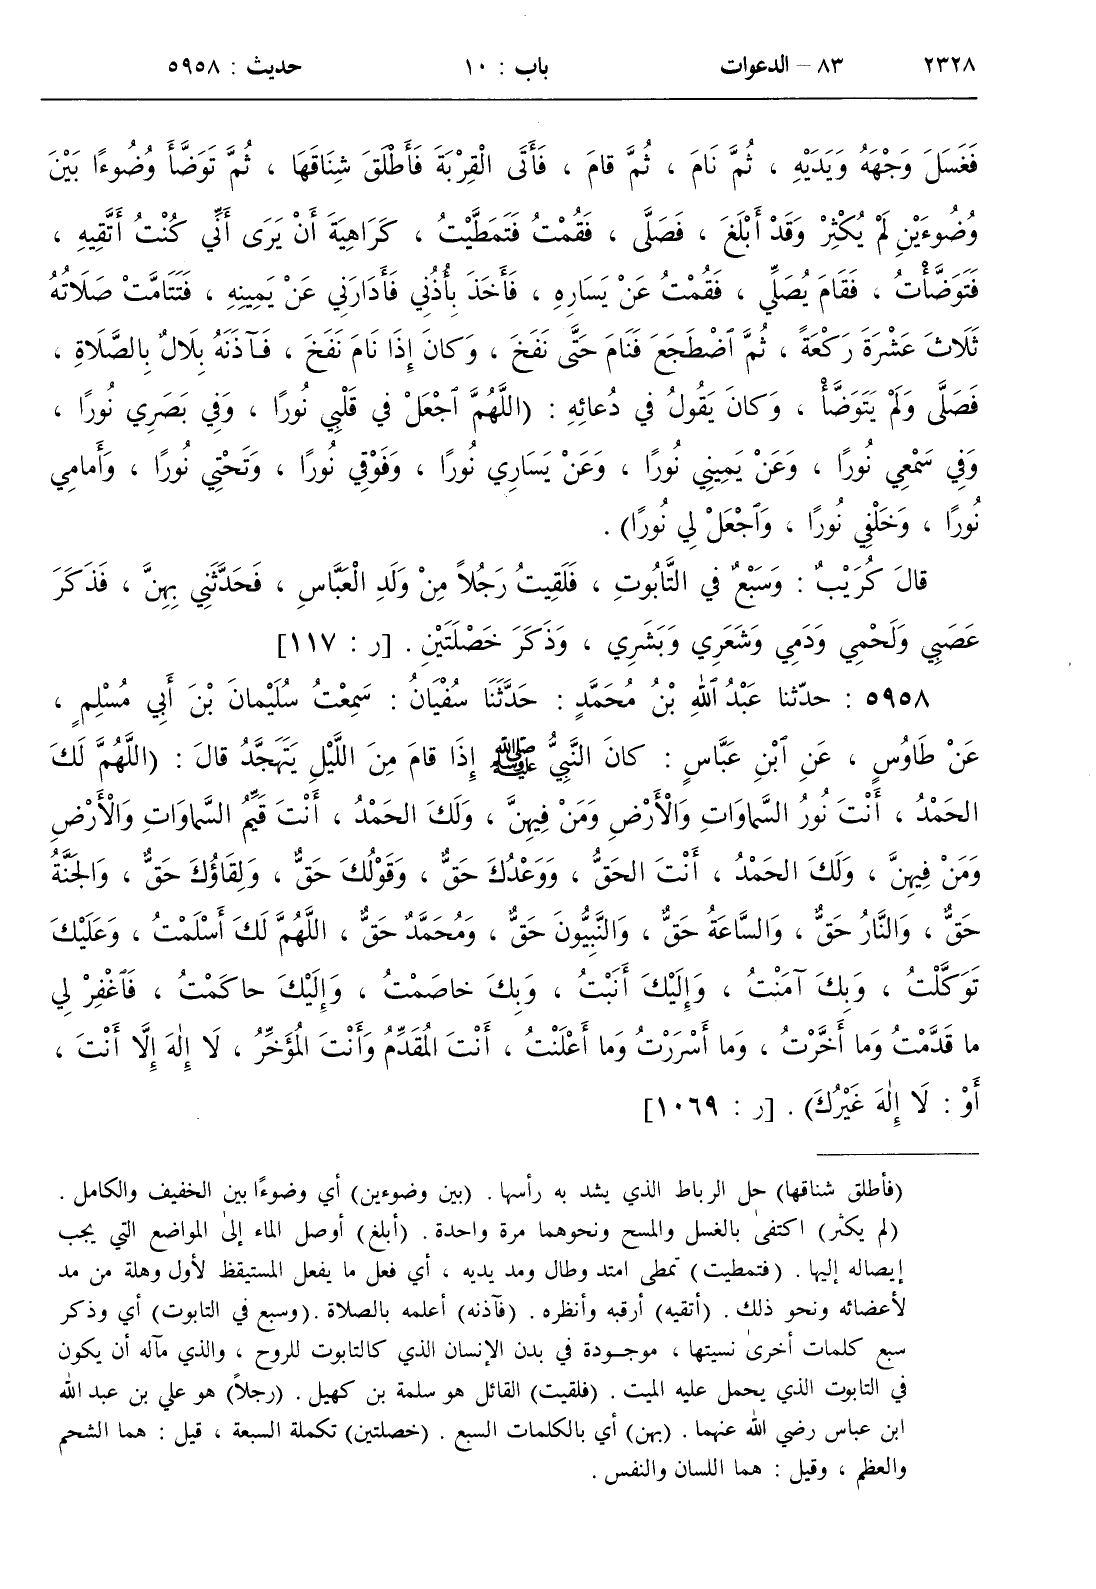 ٢٣٢٨ ٨٣ – الدعوات باب : ١٠ حديث : ٥٩٥٨
فَغَسَلَ وَجْهَهُ وَيَدَيْهِ ، ثُمَّ نَامَ ، ثُمَّ قامَ ، فَأَتَى الْقِرْبَةَ فَأَطْلَقَ شِنَاقَهَا ، ثُمَّ تَوَضَّأَ وُضُوءًا بَيْنَ
وُضُوءَيْنِ لَمْ يُكْثِرْ وَقَدْ أَبْلَغَ ، فَصَلَّى ، فَقُمْتُ فَتَمَطَّيْتُ ، كَرَاهِيَةَ أَنْ يَرَى أَنِّي كُنْتُ أَتَّقِيهِ ،
فَتَوَضَّأْتُ ، فَقَامَ يُصَلِّي ، فَقُمْتُ عَنْ يَسَارِهِ ، فَأَخَذَ بِأُذُنِي فَأَدَارَنِي عَنْ يَمِينِهِ ، فَتَتَامَّتْ صَلَاتُهُ
ثَلَاثَ عَشْرَةَ رَكْعَةً ، ثُمَّ ٱضْطَجَعَ فَنَامَ حَتَّى نَفَخَ ، وَكانَ إِذَا نَامَ نَفَخَ ، فَآذَنَهُ بِلَالٌ بِالصَّلَاةِ ،
فَصَلَّى وَلَمْ يَتَوَضَّأْ ، وَكانَ يَقُولُ فِي دُعائِهِ : (اللَّهُمَّ ٱجْعَلْ فِي قَلْبِي نُورًا ، وَفِي بَصَرِي نُورًا ،
وَفِي سَمْعِي نُورًا ، وَعَنْ يَمِينِي نُورًا ، وَعَنْ يَسَارِي نُورًا ، وَفَوْقِي نُورًا ، وَتَحْتِي نُورًا ، وَأَمامِي
نُورًا ، وَخَلْفِي نُورًا ، وَٱجْعَلْ لِي نُورًا) .
قالَ كُرَيْبٌ : وَسَبْعٌ فِي التَّابُوتِ ، فَلَقِيتُ رَجُلاً مِنْ وَلَدِ الْعَبَّاسِ ، فَحَدَّثَنِي بِهِنَّ ، فَذَكَرَ
عَصَبِي وَلَحْمِي وَدَمِي وَشَعَرِي وَبَشَرِي ، وَذَكَرَ خَصْلَتَيْنِ . [ر : ١١٧]
٥٩٥٨ : حدّثنا عَبْدُ ٱللهِ بْنُ مُحَمَّدٍ : حَدَّثَنَا سُفْيَانُ : سَمِعْتُ سُلَيْمانَ بْنَ أَبِي مُسْلِمٍ ،
عَنْ طَاوُسٍ ، عَنِ ٱبْنِ عَبَّاسٍ : كانَ النَّبِيُّ ﷺ إِذَا قامَ مِنَ اللَّيْلِ يَتَهَجَّدُ قالَ : (اللَّهُمَّ لَكَ
الحَمْدُ ، أَنْتَ نُورُ السَّماوَاتِ وَالْأَرْضِ وَمَنْ فِيهِنَّ ، وَلَكَ الحَمْدُ ، أَنْتَ قَيِّمُ السَّماوَاتِ وَالْأَرْضِ
وَمَنْ فِيهِنَّ ، وَلَكَ الحَمْدُ ، أَنْتَ الحَقُّ ، وَوَعْدُكَ حَقٌّ ، وَقَوْلُكَ حَقٌّ ، وَلِقَاؤُكَ حَقٌّ ، وَالجَنَّةُ
حَقٌّ ، وَالنَّارُ حَقٌّ ، وَالسَّاعَةُ حَقٌّ ، وَالنَّبِيُّونَ حَقٌّ ، وَمُحَمَّدٌ حَقٌّ ، اللَّهُمَّ لَكَ أَسْلَمْتُ ، وَعَلَيْكَ
تَوَكَّلْتُ ، وَبِكَ آمَنْتُ ، وَإِلَيْكَ أَنَبْتُ ، وَبِكَ خاصَمْتُ ، وَإِلَيْكَ حاكَمْتُ ، فَٱغْفِرْ لِي
ما قَدَّمْتُ وَما أَخَّرْتُ ، وَما أَسْرَرْتُ وَما أَعْلَنْتُ ، أَنْتَ المُقَدِّمُ وَأَنْتَ المُؤَخِّرُ ، لَا إِلٰهَ إِلَّا أَنْتَ ،
أَوْ : لَا إِلٰهَ غَيْرُكَ) . [ر : ١٠٦٩]
(فأطلق شناقها) حل الرباط الذي يشد به رأسها . (بين وضوءين) أي وضوءًا بين الخفيف والكامل .
(لم يكثر) اكتفى بالغسل والمسح ونحوهما مرة واحدة . (أبلغ) أوصل الماء إلى المواضع التي يجب
إيصاله إليها . (فتمطيت) تمطى امتد وطال ومد يديه ، أي فعل ما يفعل المستيقظ لأول وهلة من مد
لأعضائه ونحو ذلك . (أتقيه) أرقبه وأنظره . (فآذنه) أعلمه بالصلاة . (وسبع في التابوت) أي وذكر
سبع كلمات أخرى نسيتها ، موجودة في بدن الإنسان الذي كالتابوت للروح ، والذي مآله أن يكون
في التابوت الذي يحمل عليه الميت . (فلقيت) القائل هو سلمة بن كهيل . (رجلاً) هو علي بن عبد الله
ابن عباس رضي الله عنهما . (بهن) أي بالكلمات السبع . (خصلتين) تكملة السبعة ، قيل : هما الشحم
والعظم ، وقيل : هما اللسان والنفس .